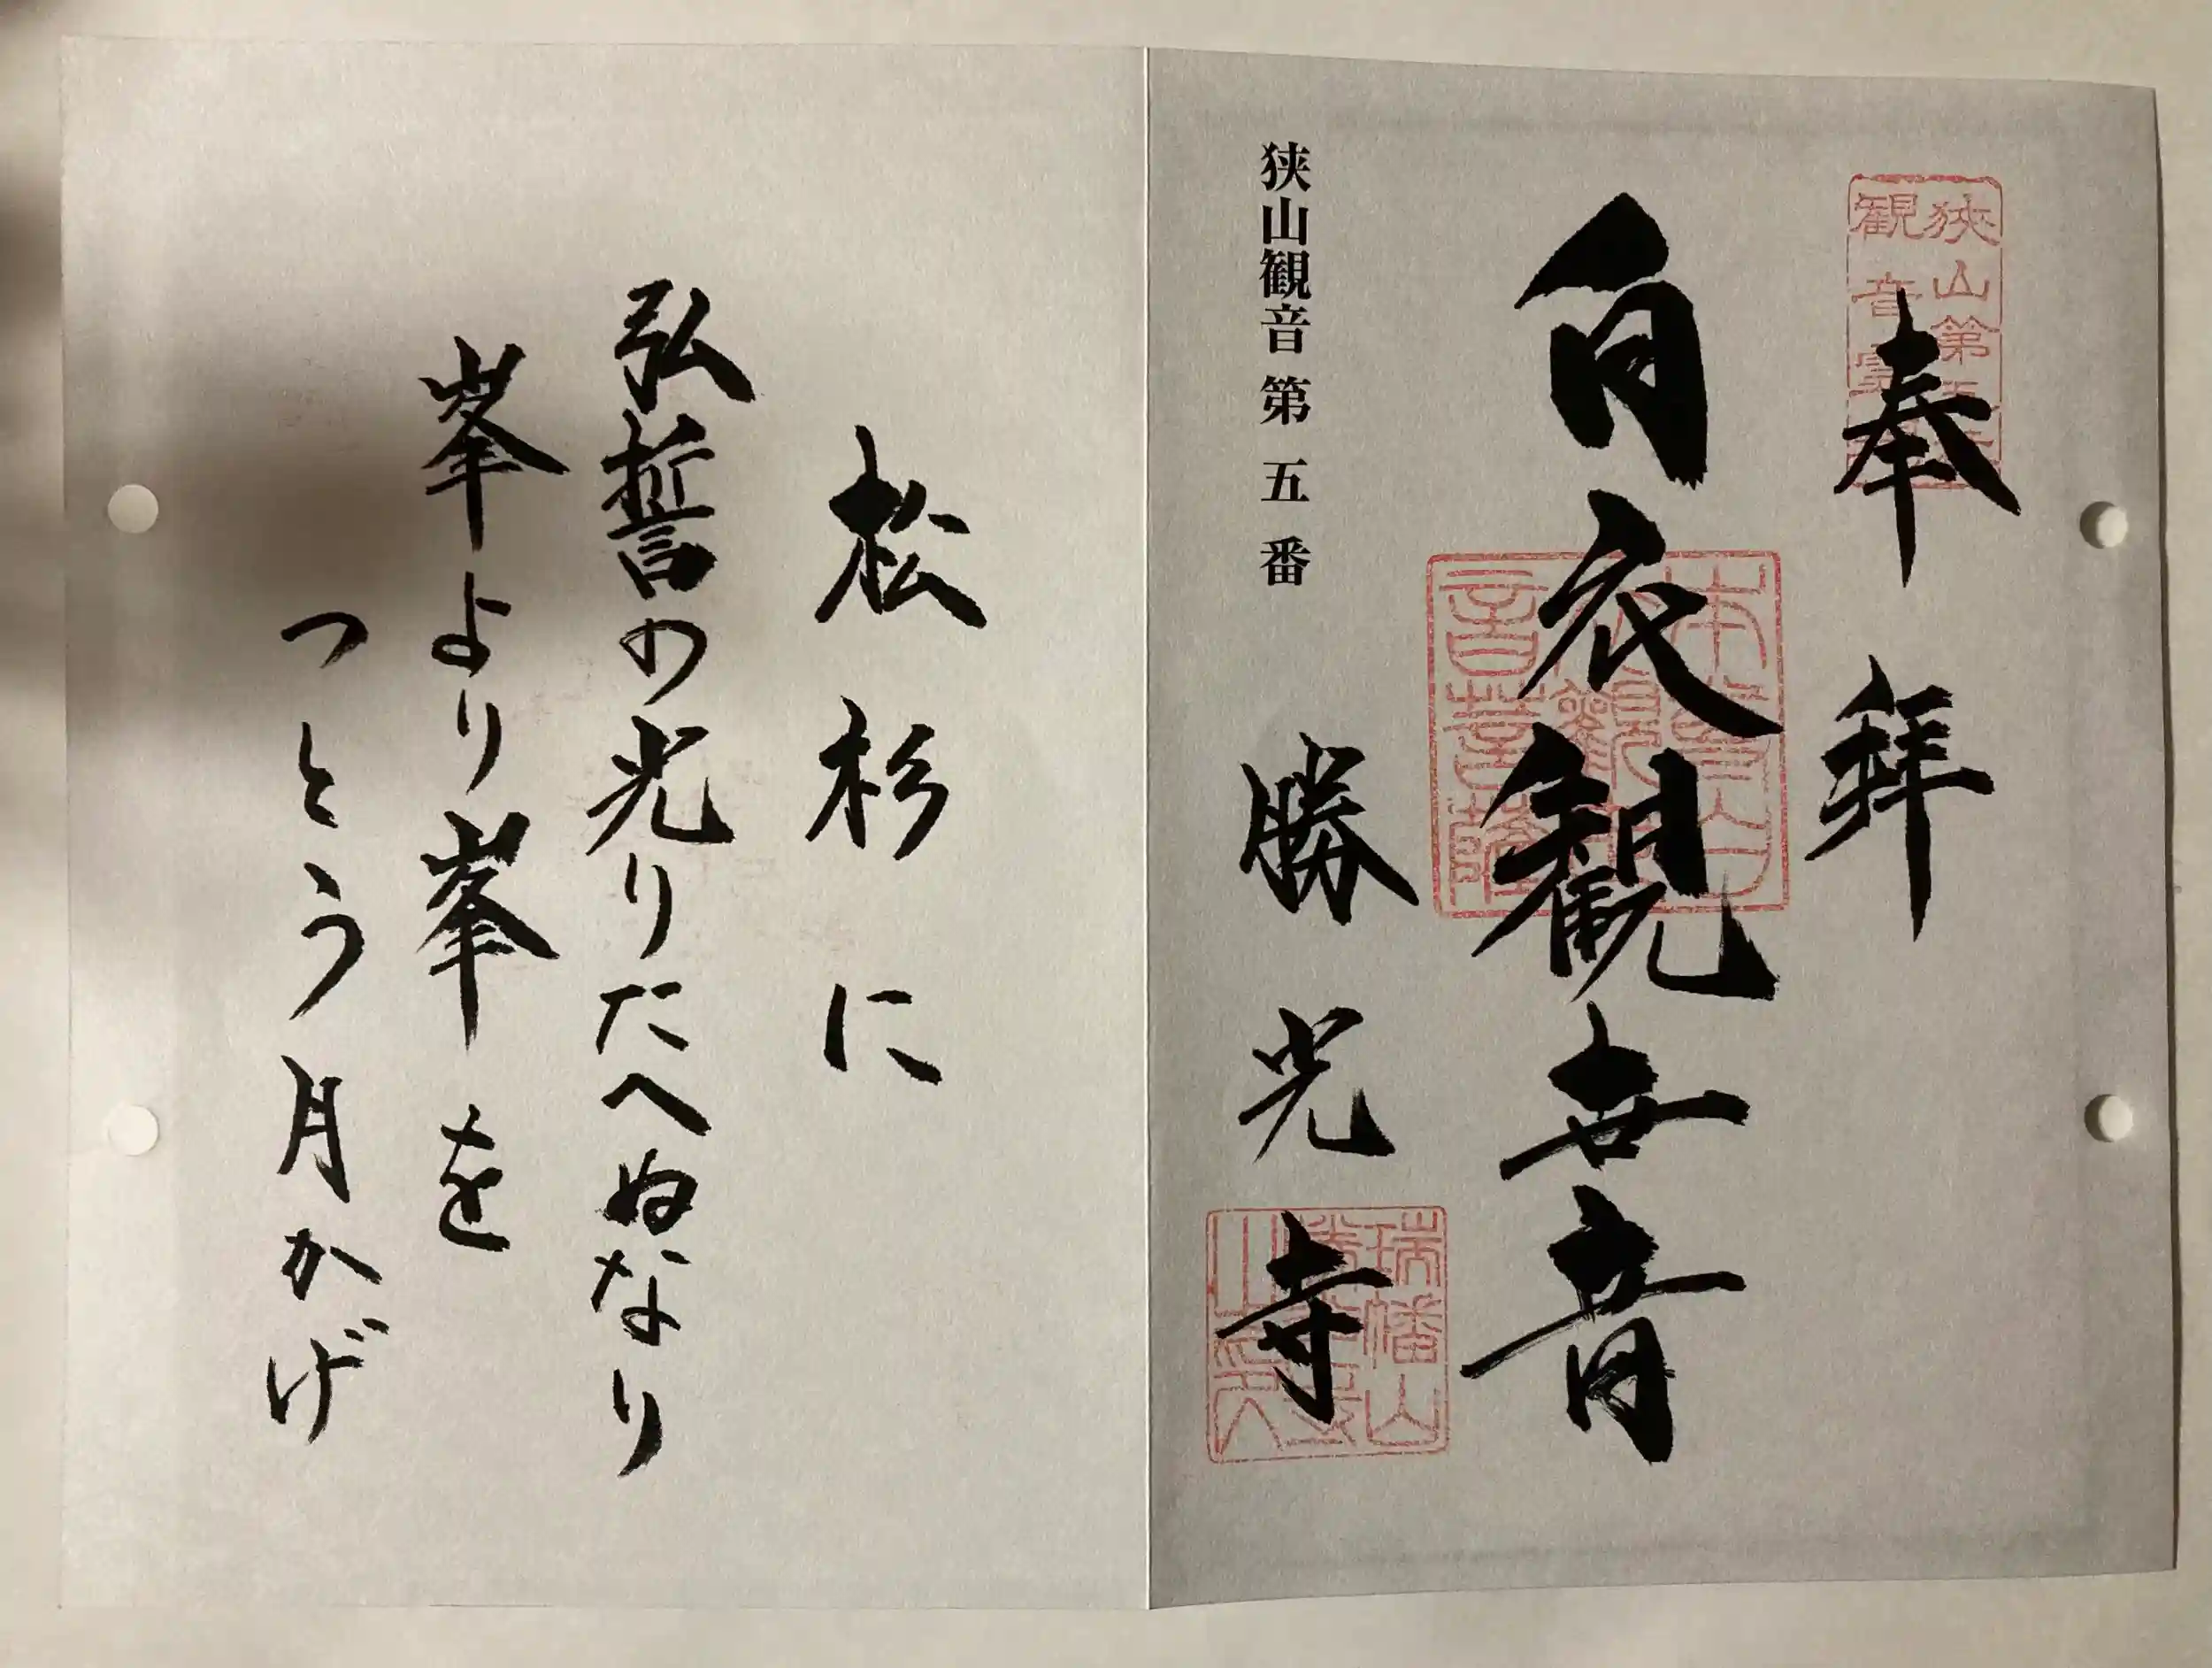 奉拝
白衣観世音
狭山観音第五番
勝光寺
松杉に
弘誓の光りたへぬなり
峯より峯を
つとう月かげ
狭山第
観音
瑞幡山